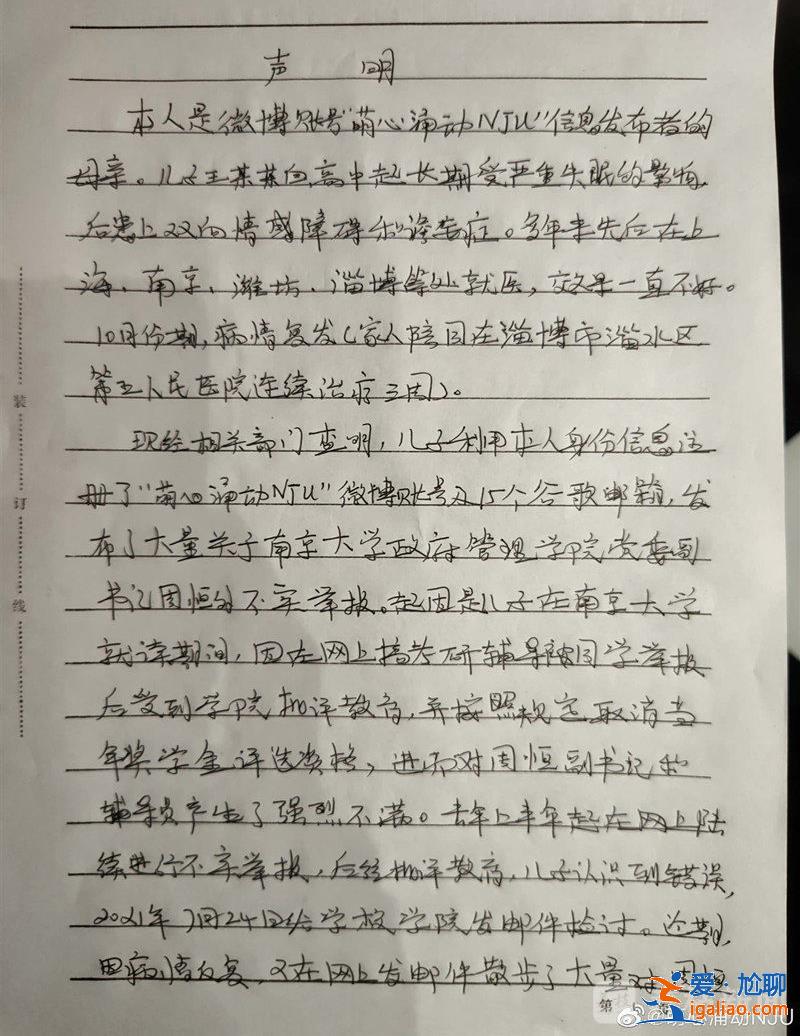 声 明
本人是微博账号“萌心涌动NJU”信息发布者的
母亲。儿子王某某自高中起长期受严重失眠的影响,
后患上双向情感障碍和渗青症。多年来先后在上
海、南京、潍坊、淄博等处就医,效果一直不好。
10月份期,病情复发(家人陪同在淄博市淄水区
第五人民医院连续治疗三周)。
现经相关部门查明,儿子利用本人身份信息注
册了“萌心涌动NJU”微博账号及15个谷歌邮箱,发
布了大量关于南京大学政府管理学院党委副
书记周恒的不实举报。起因是儿子在南京大学
就读期间,因在网上搞考研辅导被同学举报
后受到学院批评教育,并按照规定取消当
年奖学金评选资格,进而对周恒副书记和
辅导员产生了强烈不满。去年上半年起在网上陆
续进行不实举报,后经批评教育,儿子认识到错误,
2021年7月24日给学校学院发邮件检讨。近期,
因病情反复,又在网上发邮件散步了大量对周恒
装
订
线
第 页
爱·尬聊
igaliao.com
涌动NJU